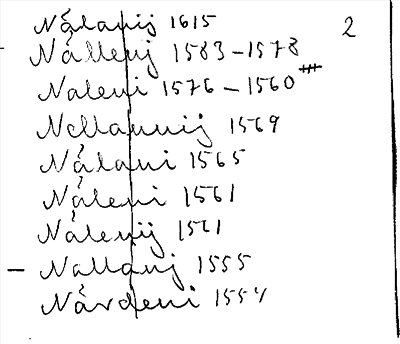 Nálanij 1615 2
Nállenj 1583-1578
Naleni 1576-1560
Nellannij 1569
Nálani 1565
Náleni 1561
Nálenij 1561
- Nallanj 1555
Nárdeni 1554